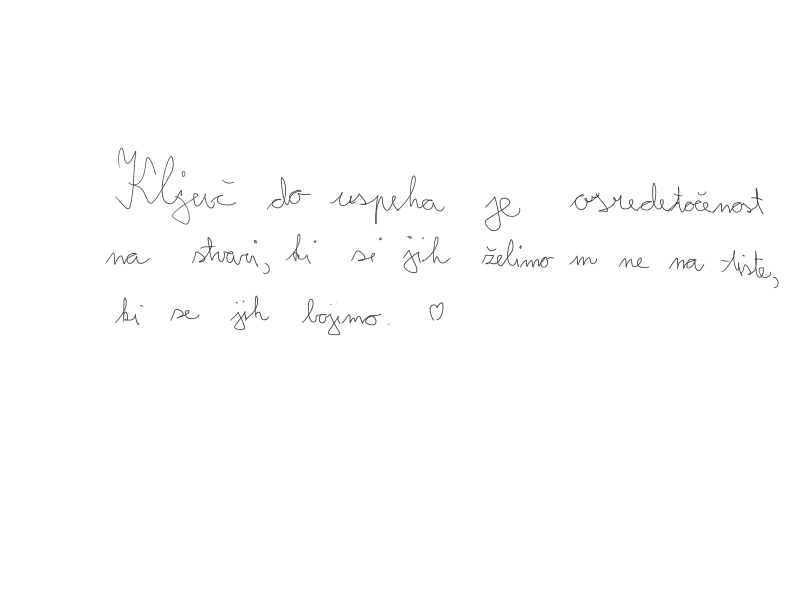 Ključ do uspeha je osredetočenost
na stvari, ki si jih želimo in ne na tiste,
ki se jih bojimo. ♡